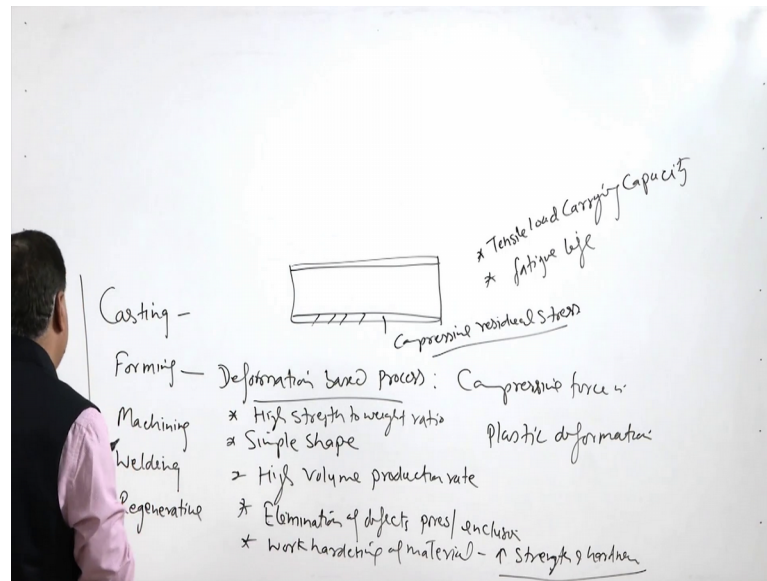 * Tensile load Carrying Capacity
* fatigue life
Compressive residual stress
Casting -
Forming - Deformation based process : Compressive force
Plastic deformation
Machining
Welding
Regenerative
* High strength to weight ratio
* Simple shape
High volume production rate
* Elimination of defects, pores/
* Work hardening of material - ↑ Strength & hardness